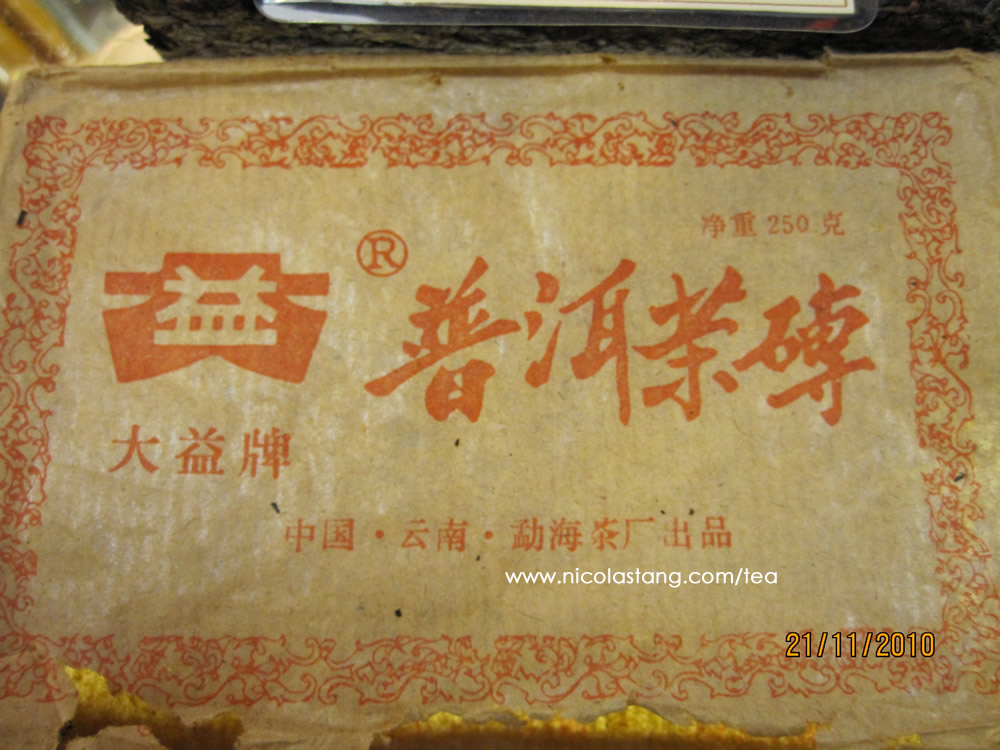 净重 250 克
益 ®
普洱茶磚
大益牌
中国·云南·勐海茶厂出品
www.nicolastang.com/tea
21/11/2010